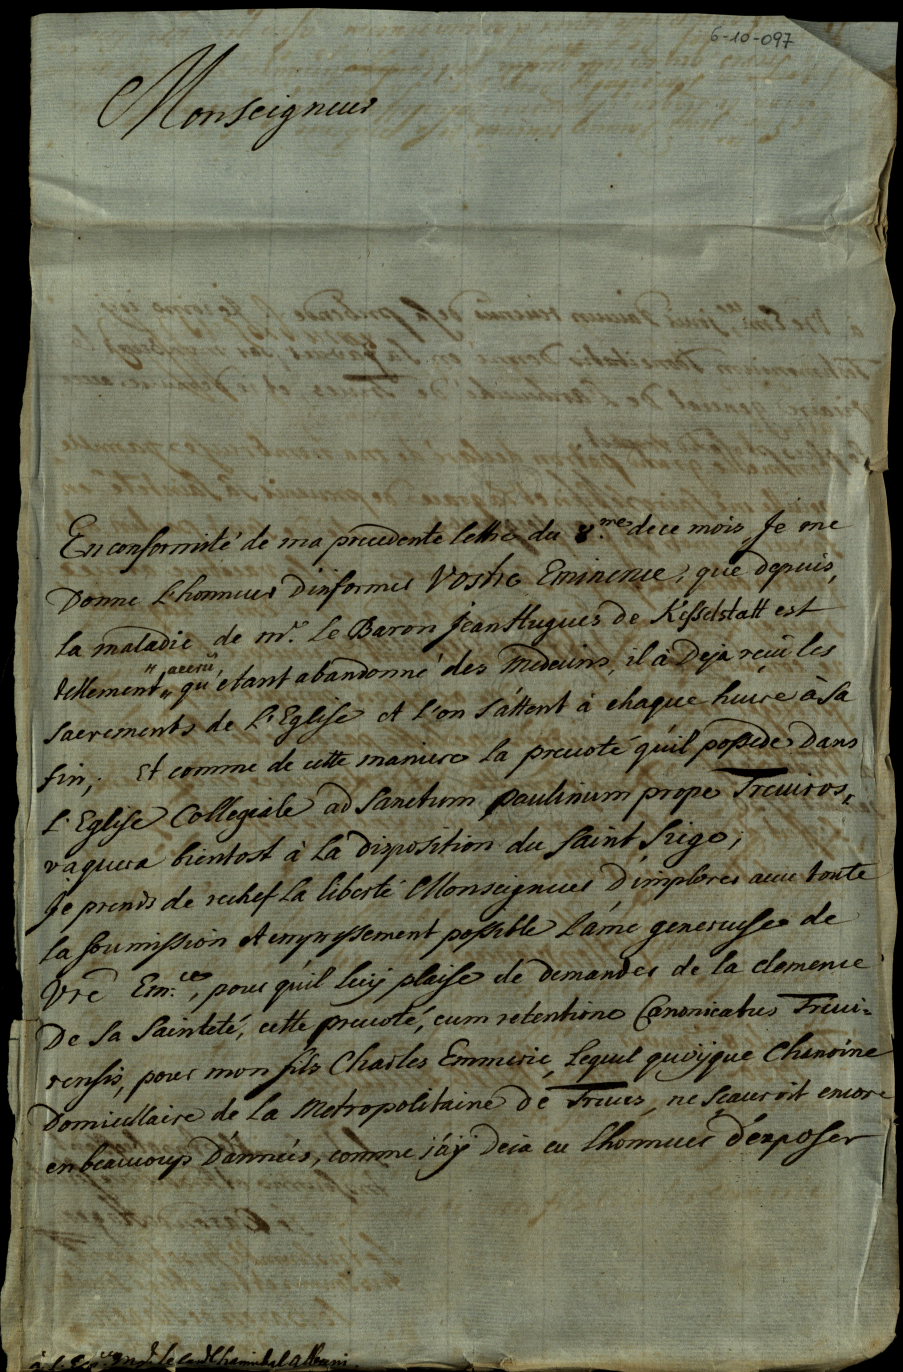 6-10-097
Monseigneur
En conformité de ma precedente lettre du 8.me de ce mois, Je me
Donne L'honneur D'informer Vostre Eminence, que depuis,
la maladie de mr. Le Baron Jean Hugues de Kesselstatt est
tellement "accru" qu'etant abandonné des Medecins, il à Deja reçu les
sacrements de L'Eglise et l'on s'attent à chaque heure à sa
fin; Et comme de cette maniere la prevoté qu'il possede Dans
L'Eglise Collegiale ad Sanctum paulinum prope Treviros,
vaquera bientost à La disposition du Saint Siege;
Je prends de rechef La liberté Monseigneur D'implorer avec toute
La soumission et empressement possible L'ame genereuse de
Vre Em.ce, pour qu'il luy plaise de demander de la clemence
De Sa Sainteté, cette prevoté, cum retentione Canonicatus Trevi=
rensis, pour mon fils Charles Emmeric, Lequel quoyque Chanoine
Domicellaire de La Metropolitaine de Treves, ne sçauroit encore
en beaucoup D'années, comme j'ay deja eu l'honneur d'exposer
à S. Em.ce Mgr. le Card.l Hannibal Albani.